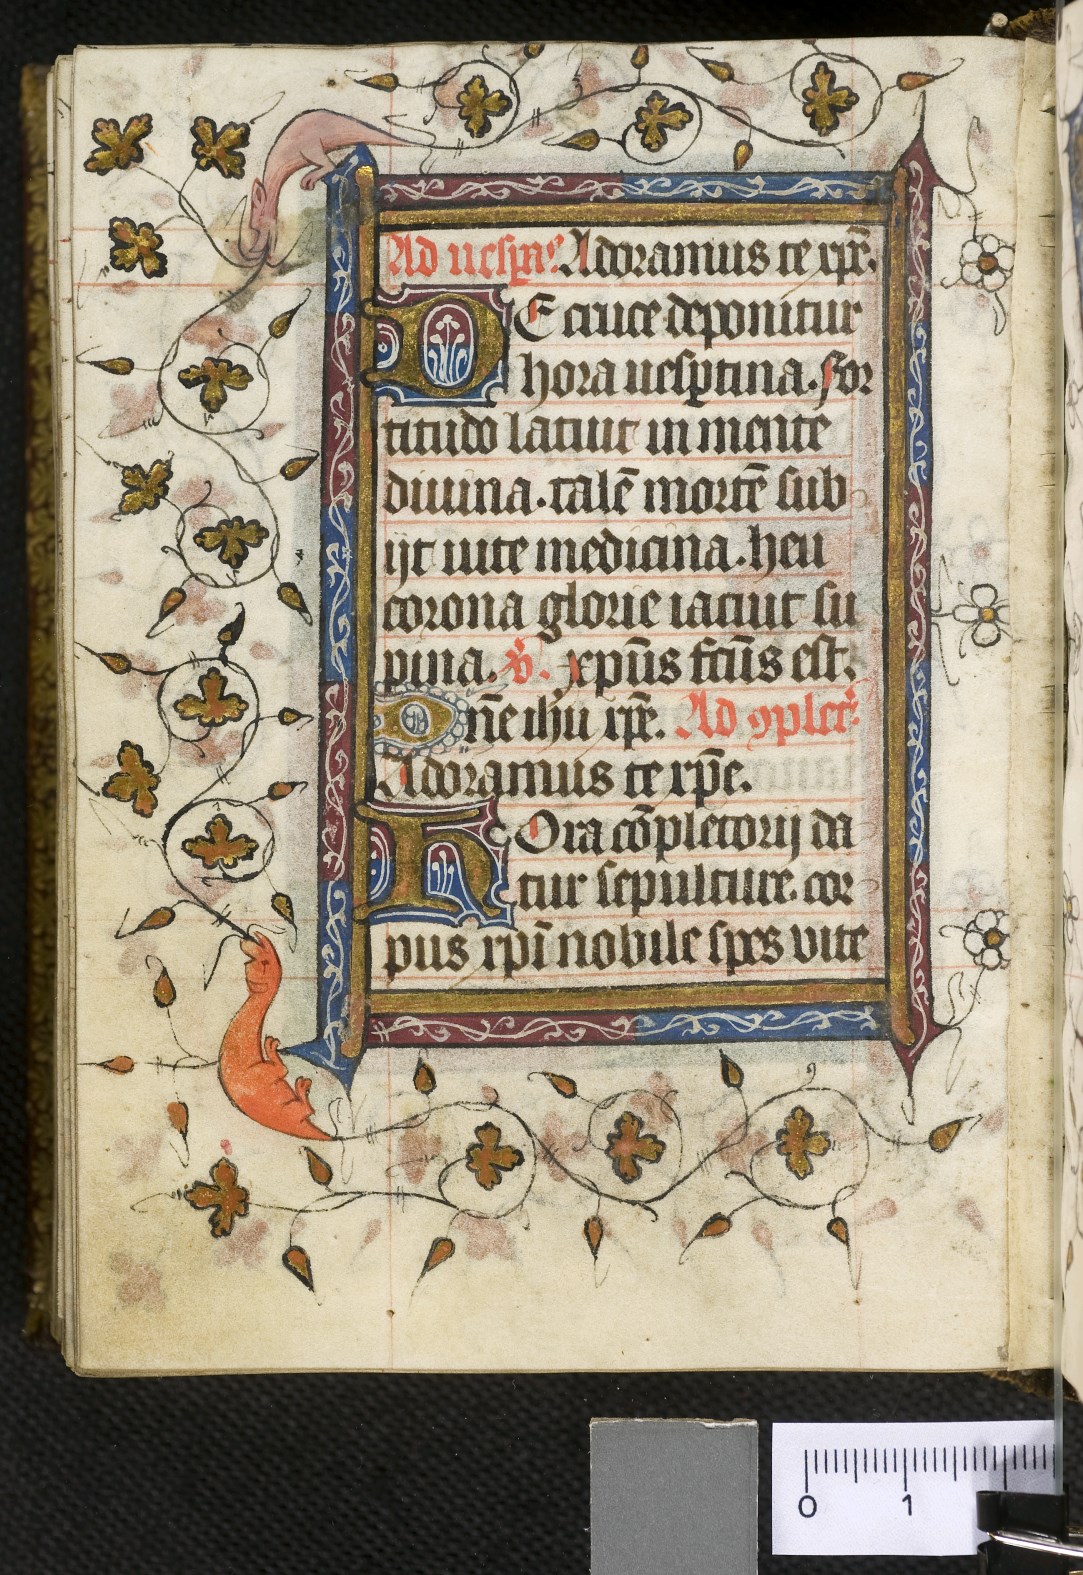 Ad uesp̄as. Adoramus te xp̄e.
DE cruce deponitur
hora uesp̄tina. for
titudo latuit in mente
diuina. talē mortē sub
ijt uite medicina. heu
corona glorie iacuit su
pina. v̄. xp̄us fc̄us est.
Dn̄e ihū xp̄e. Ad ꝯplet᷑.
Adoramus te xp̄e.
HOra cōpletorij da
tur sepulture. cor
pus xp̄i nobile spes vite
0 1